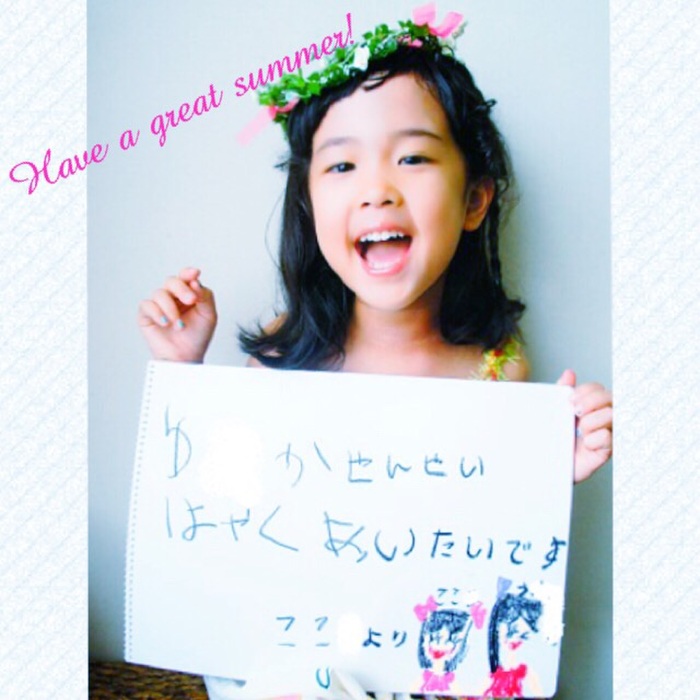 Have a great summer!
ゆ かせんせい
はやく あいたいです
ここ より